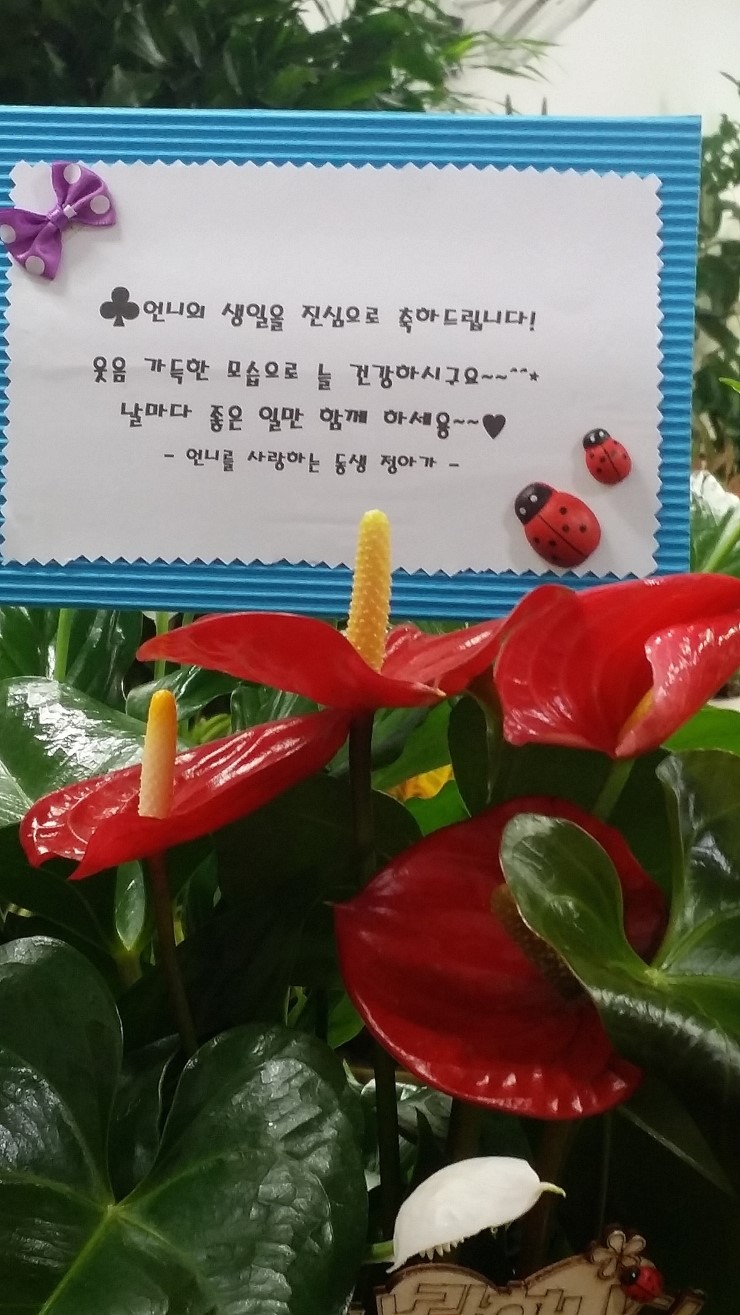 ♣언니의 생일을 진심으로 축하드립니다!
웃음 가득한 모습으로 늘 건강하시구요~~^^*
날마다 좋은 일만 함께 하세용~~♥
- 언니를 사랑하는 동생 정아가 -